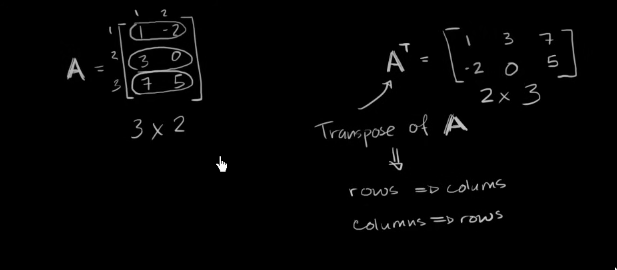 1 2
1 1 -2
A = 2 3 0
3 7 5
3 x 2
Aᵀ = 1 3 7
-2 0 5
2 x 3
Transpose of A
⇓
rows => colums
columns => rows